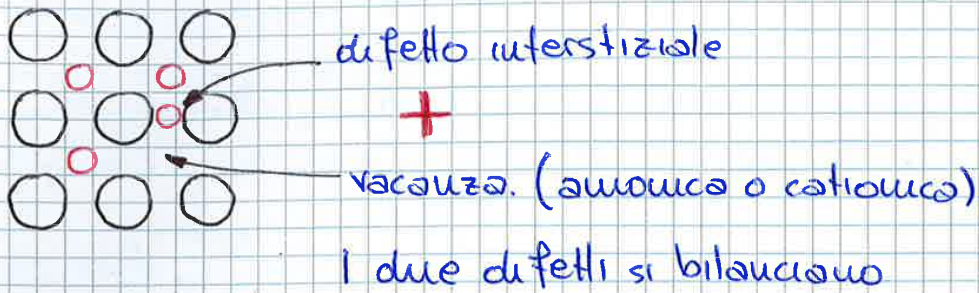 difetto interstiziale
+
vacanza. (anionica o cationica)
I due difetti si bilanciano